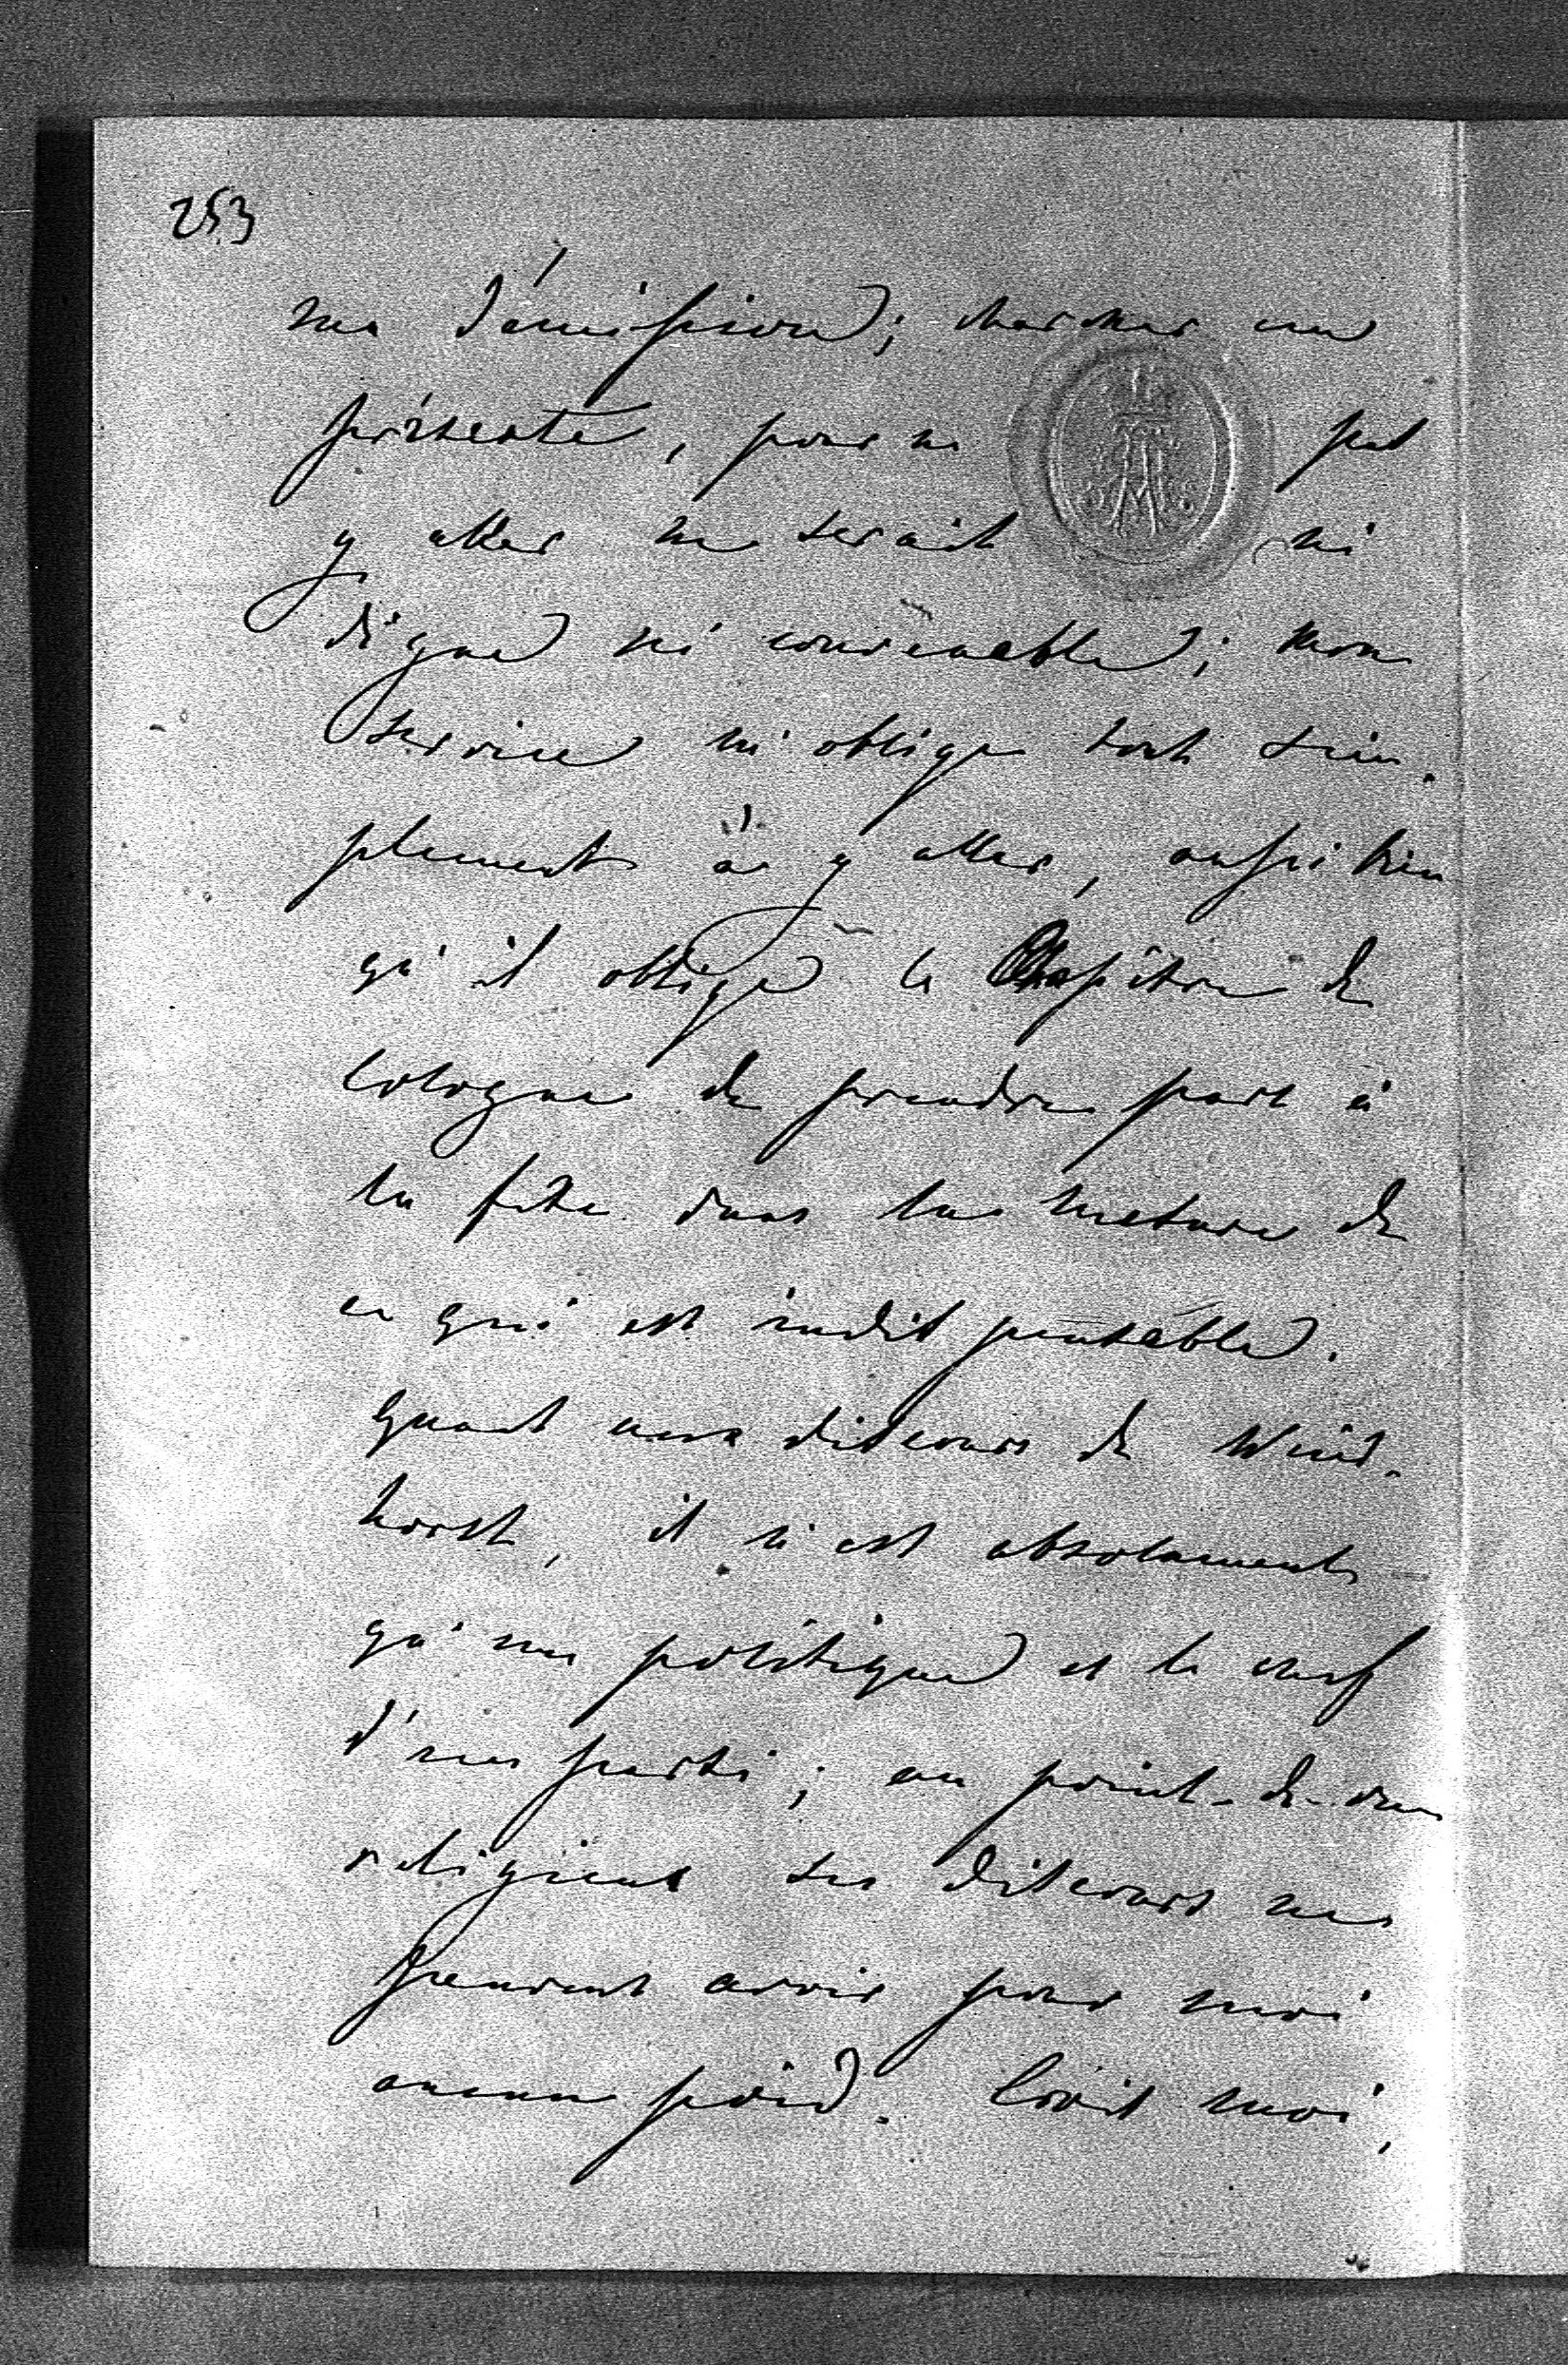 253
ma démission; chercher un
prétexte, pour ne pas
y aller ne serait ni
digne ni convenable; mon
service m'oblige tout sim-
plement à y aller, aussi bien
qu'il oblige le Chapitre de
Cologne de prendre part à
la fête dans la mesure de
ce qui est indispensable.
Quant aux discours de Wind-
horst, il n'est absolument
qu'un politique et le chef
d'un parti; au point-de-vue
religieux ses discours ne
peuvent avoir pour moi
aucun poid. Crois moi,